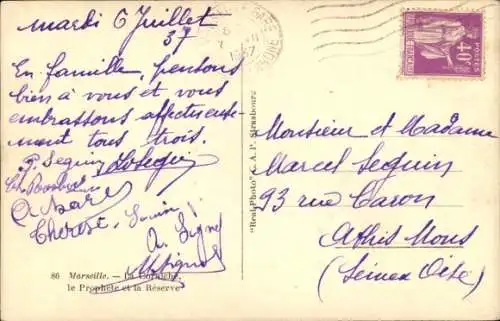 mardi 6 Juillet
37
En famille, pensons
bien à vous et vous
embrassons affectueuse-
ment tous trois.
P. Seguin
Therese, Louis
A. Signol
86 Marseille. — La Corniche,
le Prophète et la Réserve
"Real-Photo" C. A. P. Strasbourg
1937
POSTES
40c
Monsieur et Madame
Marcel Seguin
93 rue Caron
Athis Mons
(Seine & Oise)